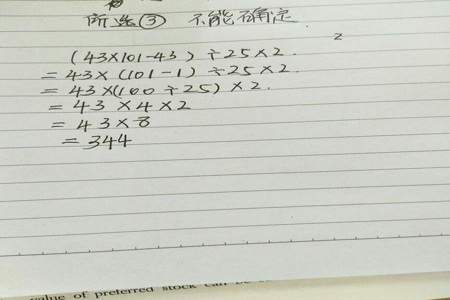 所选③ 不能确定
2
(43×101-43)÷25×2.
=43×(101-1)÷25×2.
=43×(100÷25)×2.
=43×4×2
=43×8
=344
value of preferred stock can be